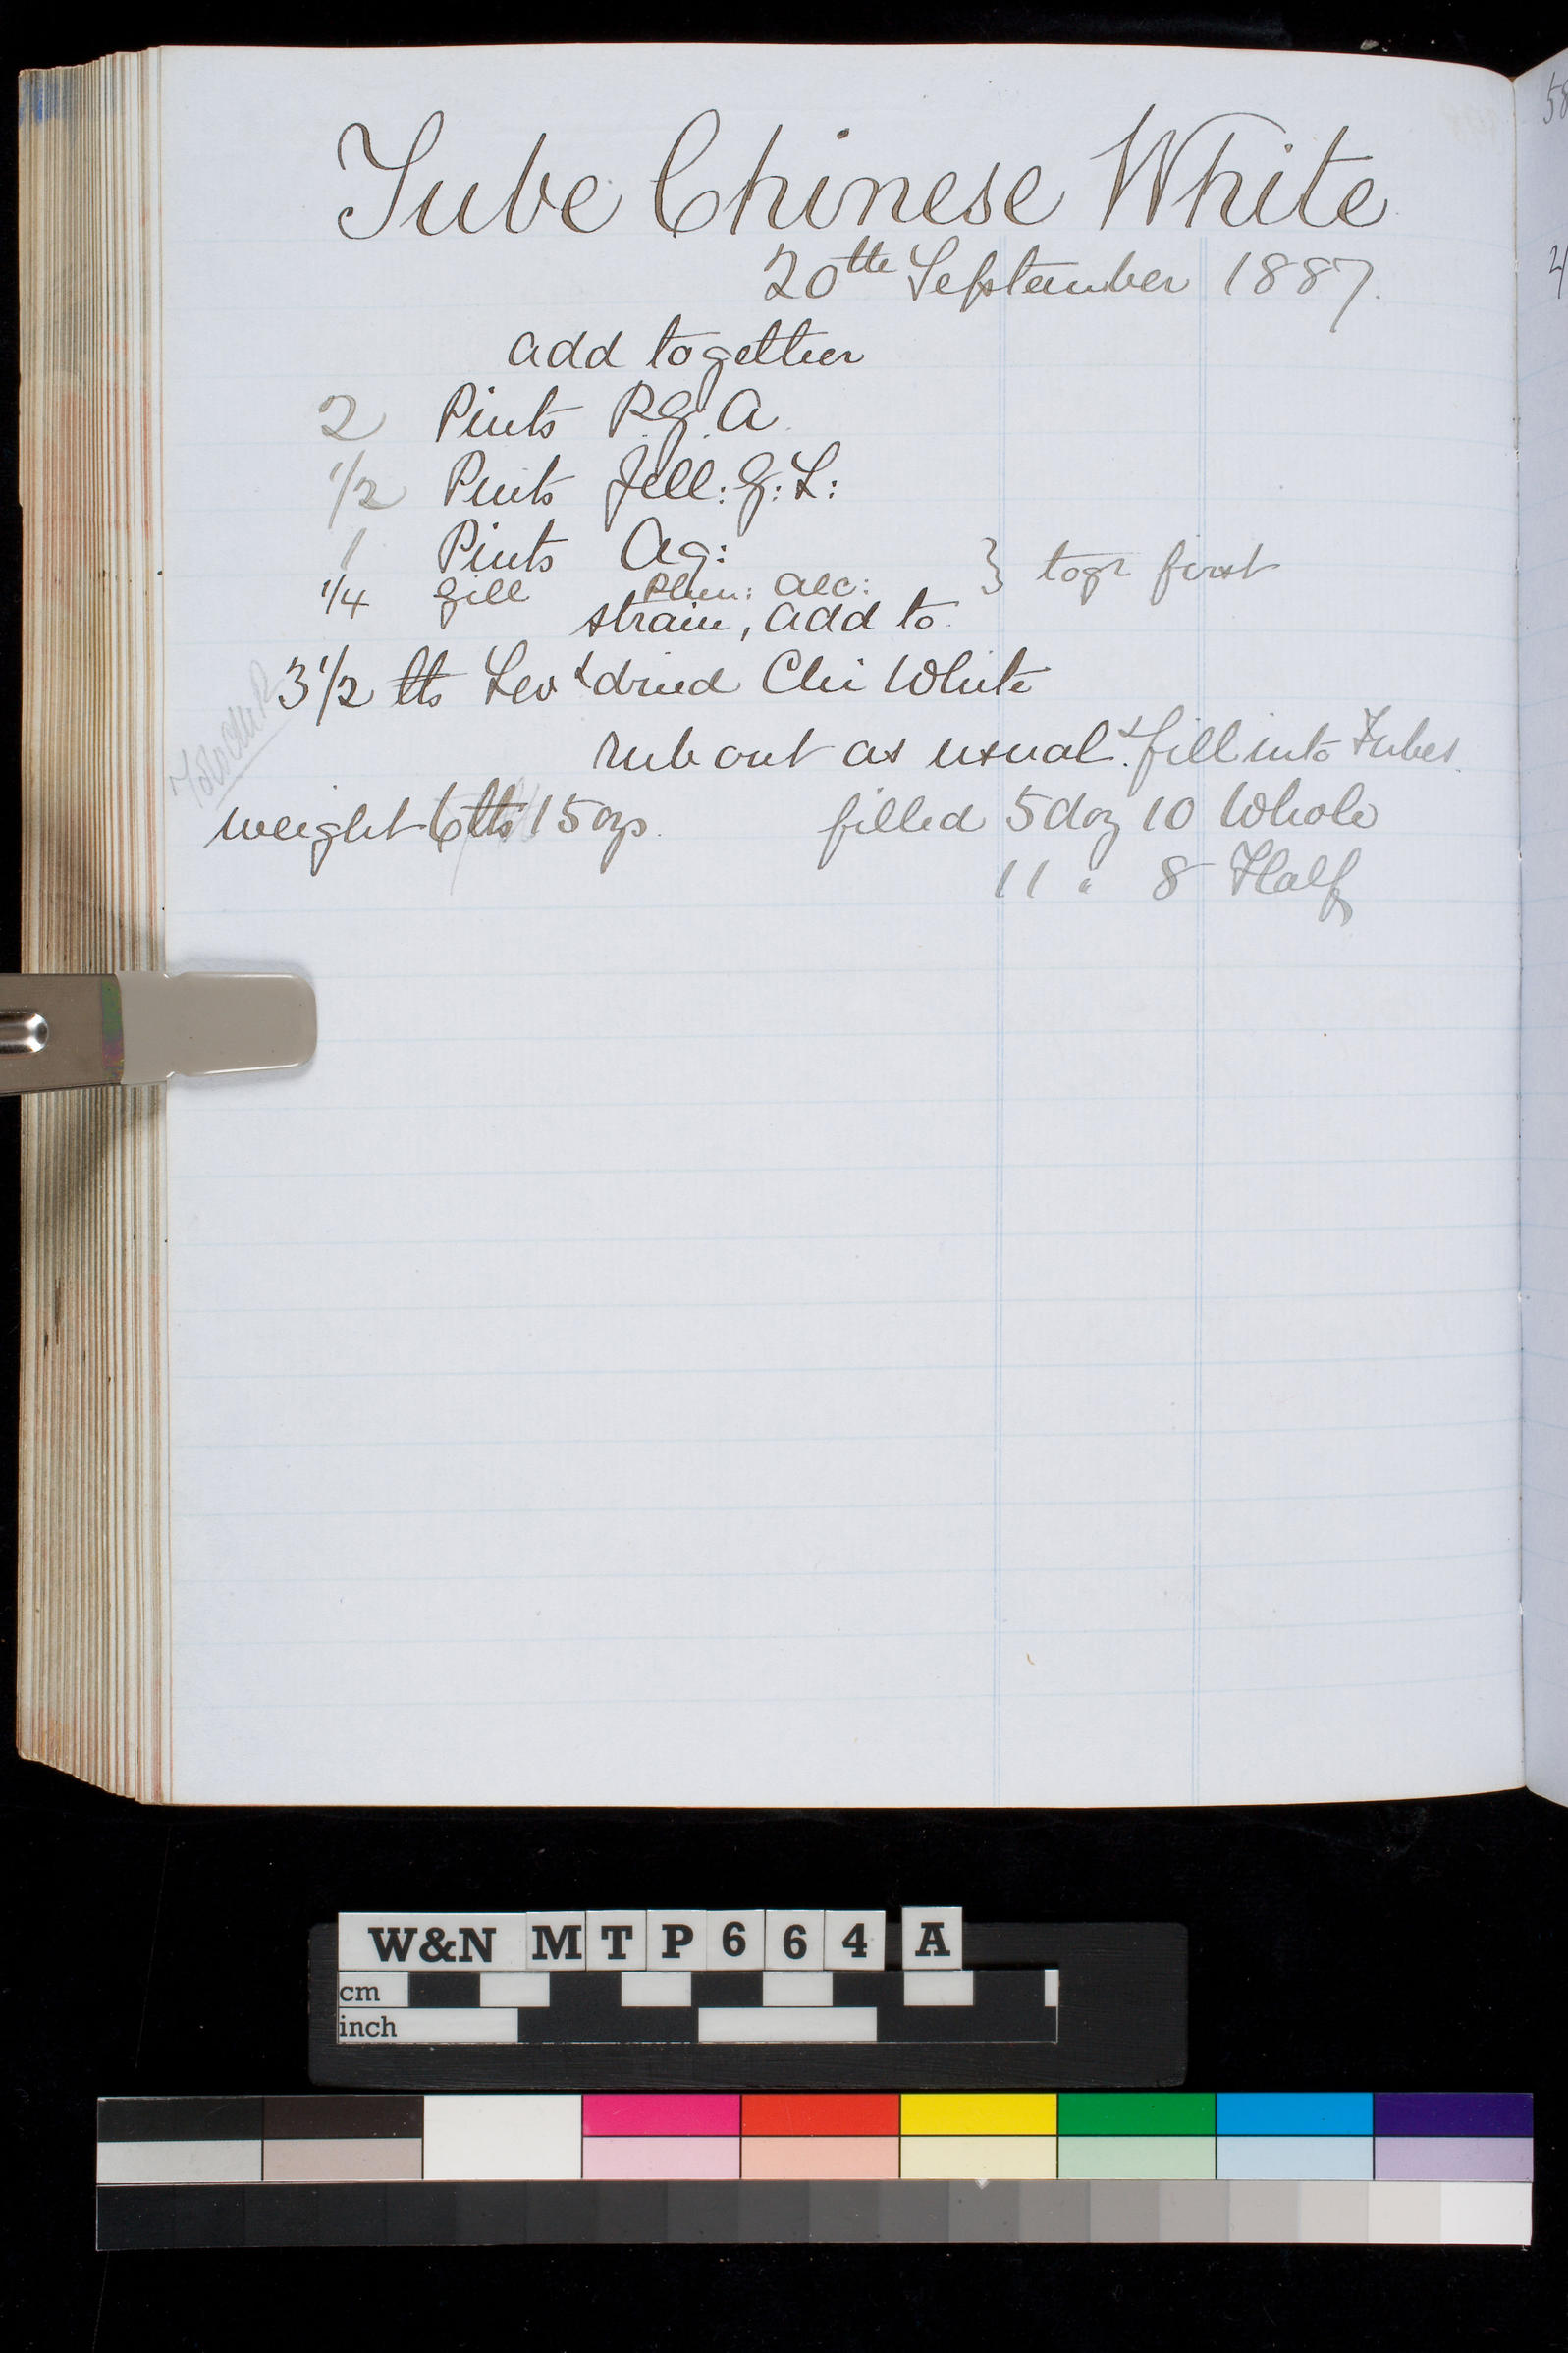 Tube Chinese White
20th September 1887.
add together
2 Pints P.G.A.
1/2 Pints Jell: G: L:
1 Pints Aq:
1/4 gill Phen: Alc: } togr first
strain, add to
3 1/2 lbs Lev & dried Chi White
rub out as usual & fill into Tubes.
weight 6 lbs 15 ozs. filled 5 doz 10 Whole
11 " 8 Half
58
W&N MTP664 A
cm
inch